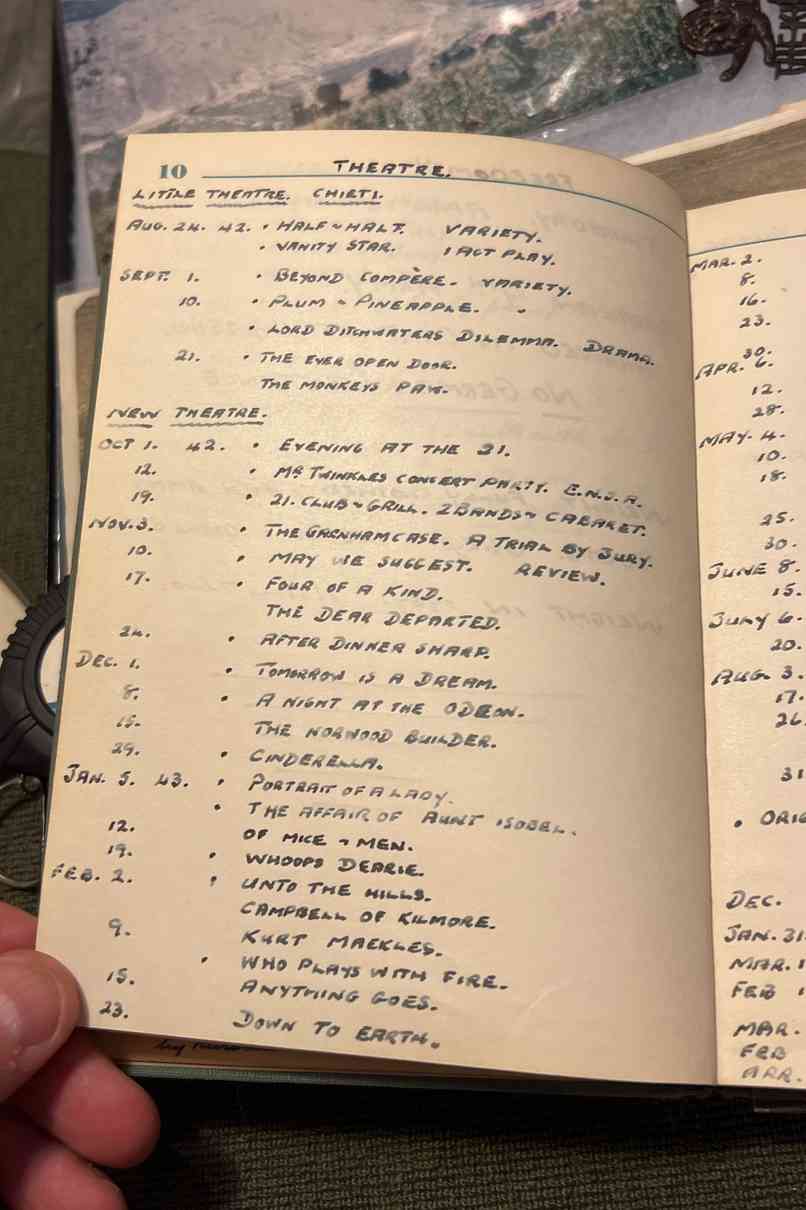 10 THEATRE.
LITTLE THEATRE. CHIETI.
AUG. 24. 42. • HALF ~ HALT. VARIETY.
• VANITY STAR. 1 ACT PLAY.
SEPT. 1. • BEYOND COMPÈRE. VARIETY.
10. • PLUM ~ PINEAPPLE. "
• LORD DITCHWATERS DILEMMA. DRAMA.
21. • THE EVER OPEN DOOR.
THE MONKEYS PAW.
NEW THEATRE.
OCT 1. 42. • EVENING AT THE 21.
12. • MR TWINKLES CONCERT PARTY. E.N.S.A.
19. • 21. CLUB ~ GRILL. 2 BANDS ~ CABARET.
NOV. 3. • THE GARNHAM CASE. A TRIAL BY JURY.
10. • MAY WE SUGGEST. REVIEW.
17. • FOUR OF A KIND.
THE DEAR DEPARTED.
24. • AFTER DINNER SHARP.
DEC. 1. • TOMORROW IS A DREAM.
8. • A NIGHT AT THE ODEON.
15. THE NORWOOD BUILDER.
29. • CINDERELLA.
JAN. 5. 43. • PORTRAIT OF A LADY.
• THE AFFAIR OF AUNT ISOBEL.
12. OF MICE ~ MEN.
19. • WHOOPS DEARIE.
FEB. 2. • UNTO THE HILLS.
CAMPBELL OF KILMORE.
9. KURT MAEKLES.
• WHO PLAYS WITH FIRE.
15. ANYTHING GOES.
23. DOWN TO EARTH.
MAR. 2.
8.
16.
23.
30.
APR. 6.
12.
28.
MAY. 4.
10.
18.
25.
30.
JUNE 8.
15.
JULY 6.
20.
AUG. 3.
17.
26.
31
• ORIG
DEC.
JAN. 31.
MAR. 1
FEB
MAR.
FEB
APR.